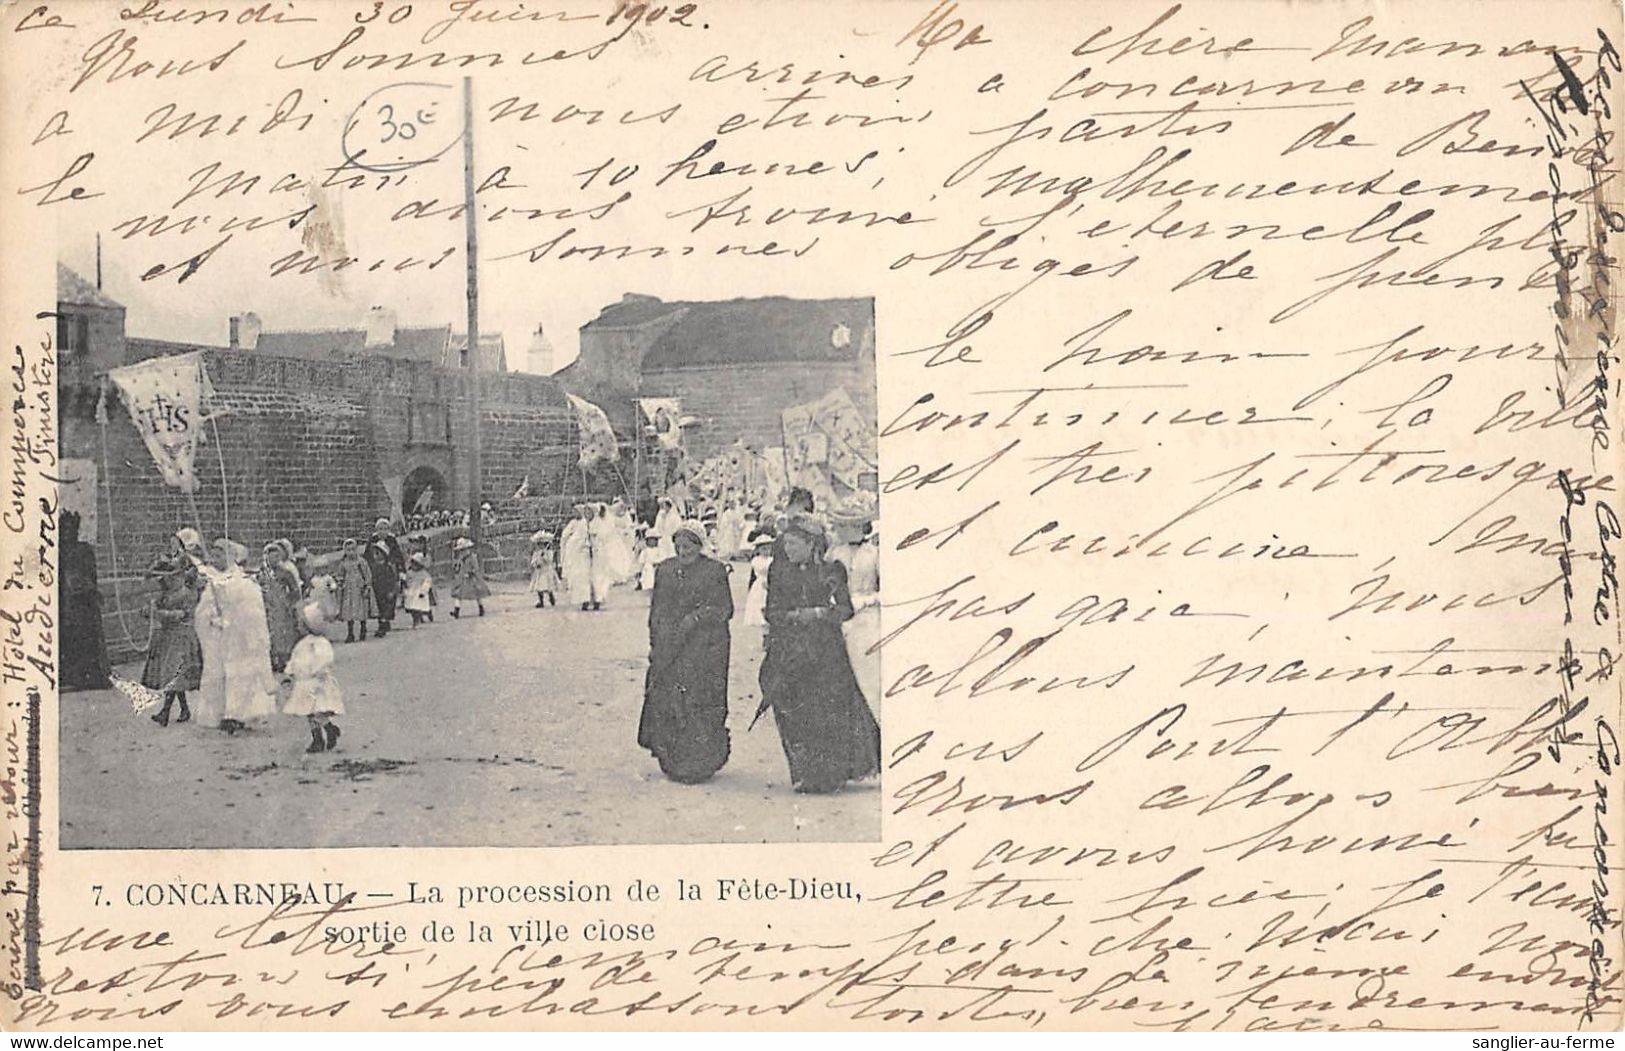 ce Lundi 30 Juin 1902.
Ma chère Maman
Nous sommes arrivés a Concarneau
a midi, nous etions partis de
30€
le matin à 10 heures, malheureusement
nous avions trouvé l'eternelle pluie
et nous sommes obligés de prendre
le train pour
continuer, la ville
est très pittoresque
et curieuse, mais
pas gaie, nous
allons maintenant
vers Pont l'Abbé
Nous allons bien
et avons trouvé ta
lettre hier, je t'écrirai
une lettre, demain peut-être mais nous
restons si peu de temps dans le même endroit
Nous vous embrassons toutes, bien tendrement
IHS
7. CONCARNEAU. — La procession de la Fête-Dieu,
sortie de la ville close
Ecrire par retour : Hôtel du Commerce
Audierne (Finistère)
Reçu deuxième lettre à Concarneau